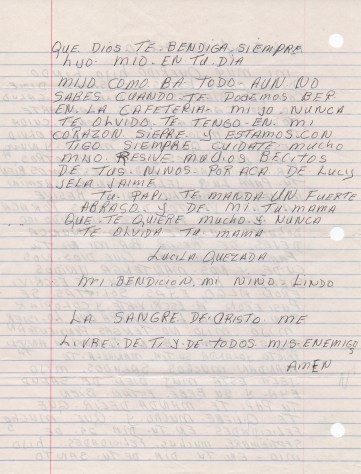 QUE DIOS TE BENDIGA SIEMPRE
HIJO MIO EN TU DIA
MIJO COMO BA TODO AUN NO
SABES CUANDO TE PODEMOS BER
EN LA CAFETERIA. MIJO NUNCA
TE OLVIDO TE TENGO EN MI
CORAZON SIEPRE Y ESTAMOS CON
TIGO SIEMPRE CUIDATE MUCHO
MIJO RESIVE MUCHOS BECITOS
DE TUS NINOS POR ACA DE LUCIS
JELA JAIME
TU PAPI TE MANDA UN FUERTE
ABRAÇO Y DE MI TU MAMA
QUE TE QUIERE MUCHO Y NUNCA
TE OLVIDA TU MAMA
LUCILA QUEZADA
MI BENDICION MI NIÑO LINDO
LA SANGRE DE CRISTO ME
LIVRE DE TI Y DE TODOS MIS ENEMIGOS
AMEN